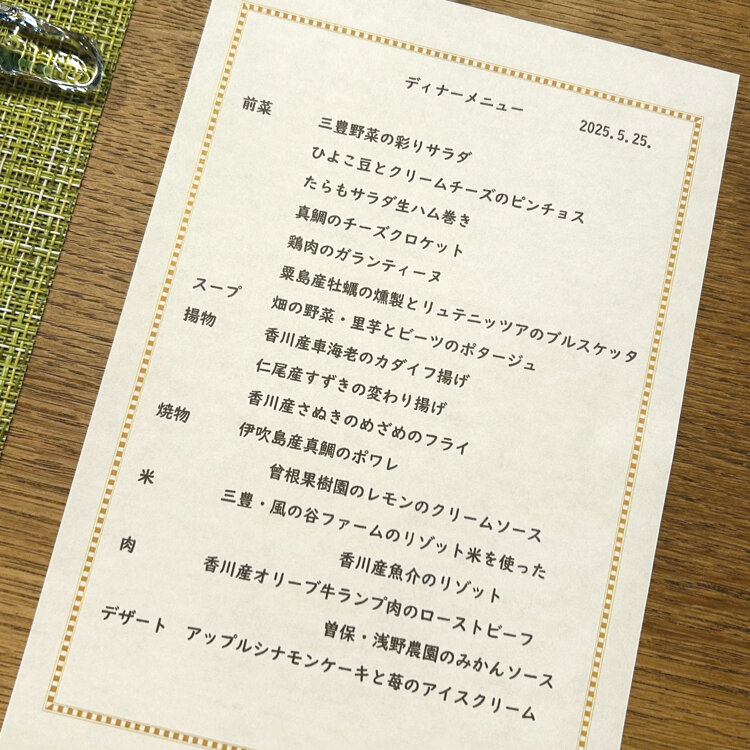 ディナーメニュー
2025.5.25.
前菜 三豊野菜の彩りサラダ
ひよこ豆とクリームチーズのピンチョス
たらもサラダ生ハム巻き
真鯛のチーズクロケット
鶏肉のガランティーヌ
粟島産牡蠣の燻製とリュテニッツアのブルスケッタ
スープ 畑の野菜・里芋とビーツのポタージュ
揚物 香川産車海老のカダイフ揚げ
仁尾産すずきの変わり揚げ
香川産さぬきのめざめのフライ
焼物 伊吹島産真鯛のポワレ
曾根果樹園のレモンのクリームソース
米 三豊・風の谷ファームのリゾット米を使った
香川産魚介のリゾット
肉 香川産オリーブ牛ランプ肉のローストビーフ
曽保・浅野農園のみかんソース
デザート アップルシナモンケーキと苺のアイスクリーム